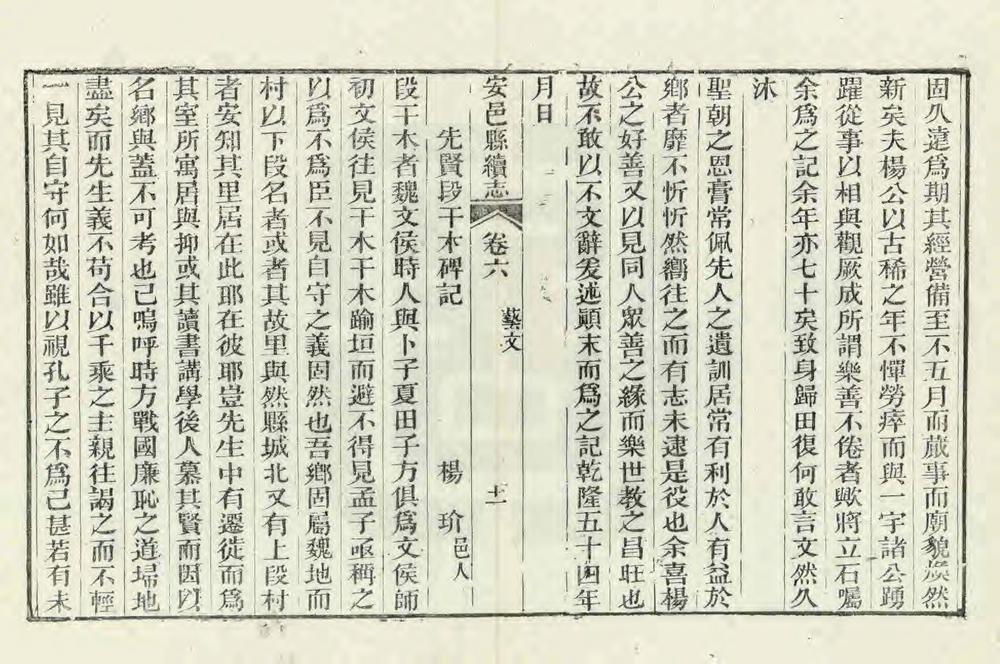 固久遠爲期其經營備至不五月而蕆事而廟貌煥然
新矣夫楊公以古稀之年不憚勞瘁而與一宇諸公踴
躍從事以相與觀厥成所謂樂善不倦者歟將立石囑
余爲之記余年亦七十矣致身歸田復何敢言文然久
沐
聖朝之恩膏常佩先人之遺訓居常有利於人有益於
鄉者靡不忻忻然嚮往之而有志未逮是役也余喜楊
公之好善又以見同人眾善之緣而樂世教之昌旺也
故不敢以不文辭爰述顚末而爲之記乾隆五十四年
月日
安邑縣續志 卷六 藝文 十一
先賢段干木碑記 楊玠邑人
段干木者魏文侯時人與卜子夏田子方俱爲文侯師
初文侯往見干木干木踰垣而避不得見孟子亟稱之
以爲不爲臣不見自守之義固然也吾鄉固屬魏地而
村以下段名者或者其故里與然縣城北又有上段村
者安知其里居在此耶在彼耶豈先生中有遷徙而爲
其室所寓居與抑或其讀書講學後人慕其賢而因以
名鄉與蓋不可考也已嗚呼時方戰國廉恥之道埽地
盡矣而先生義不苟合以千乘之主親往謁之而不輕
一見其自守何如哉雖以視孔子之不爲已甚若有未